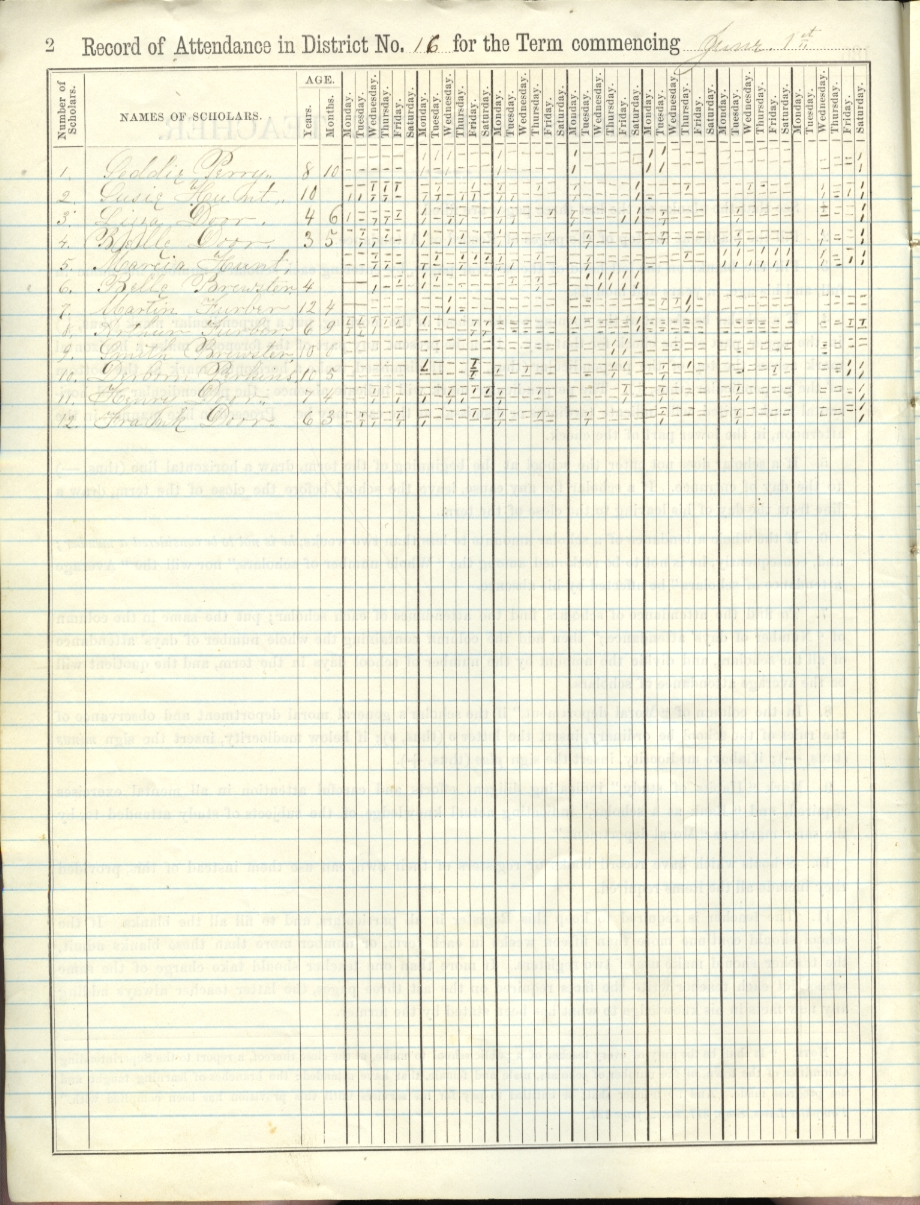 2 Record of Attendance in District No. 16 for the Term commencing June 1st
Number of Scholars. NAMES OF SCHOLARS. AGE. Years. Months. Monday. Tuesday. Wednesday. Thursday. Friday. Saturday. Monday. Tuesday. Wednesday. Thursday. Friday. Saturday. Monday. Tuesday. Wednesday. Thursday. Friday. Saturday. Monday. Tuesday. Wednesday. Thursday. Friday. Saturday. Monday. Tuesday. Wednesday. Thursday. Friday. Saturday. Monday. Tuesday. Wednesday. Thursday. Friday. Saturday. Monday. Tuesday. Wednesday. Thursday. Friday. Saturday.
1. Perry. 8 10
2. Susie Hunt. 10
3. Door. 4 6
4. Belle Door. 3 5
5. Marcia Hunt.
6. Belle Brewster 4
7. Martin Furber 12 4
8. Arthur Furber 6 9
9. Smith Brewster 10 0
10. Perkins 10 5
11. Henry Door. 7 4
12. Frank Door 6 3